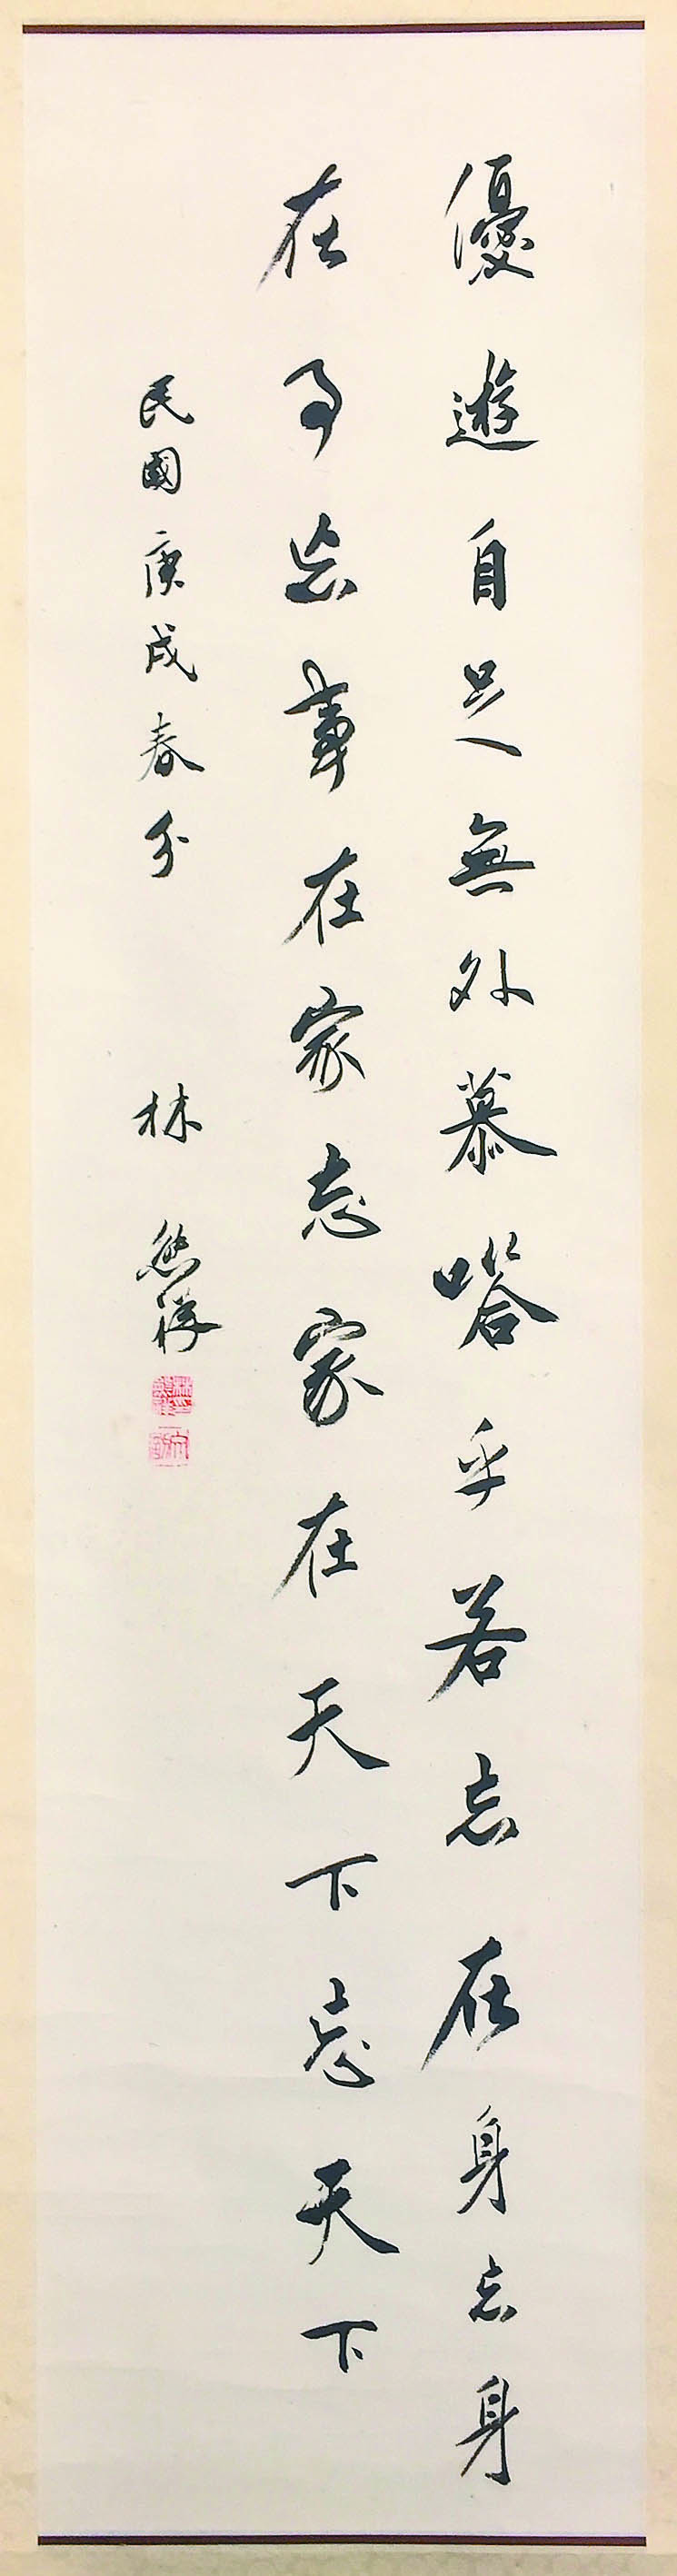 優遊自足無外慕嗒乎若忘在身忘身
在事忘事在家忘家在天下忘天下
民國庚戌春分
林熊祥